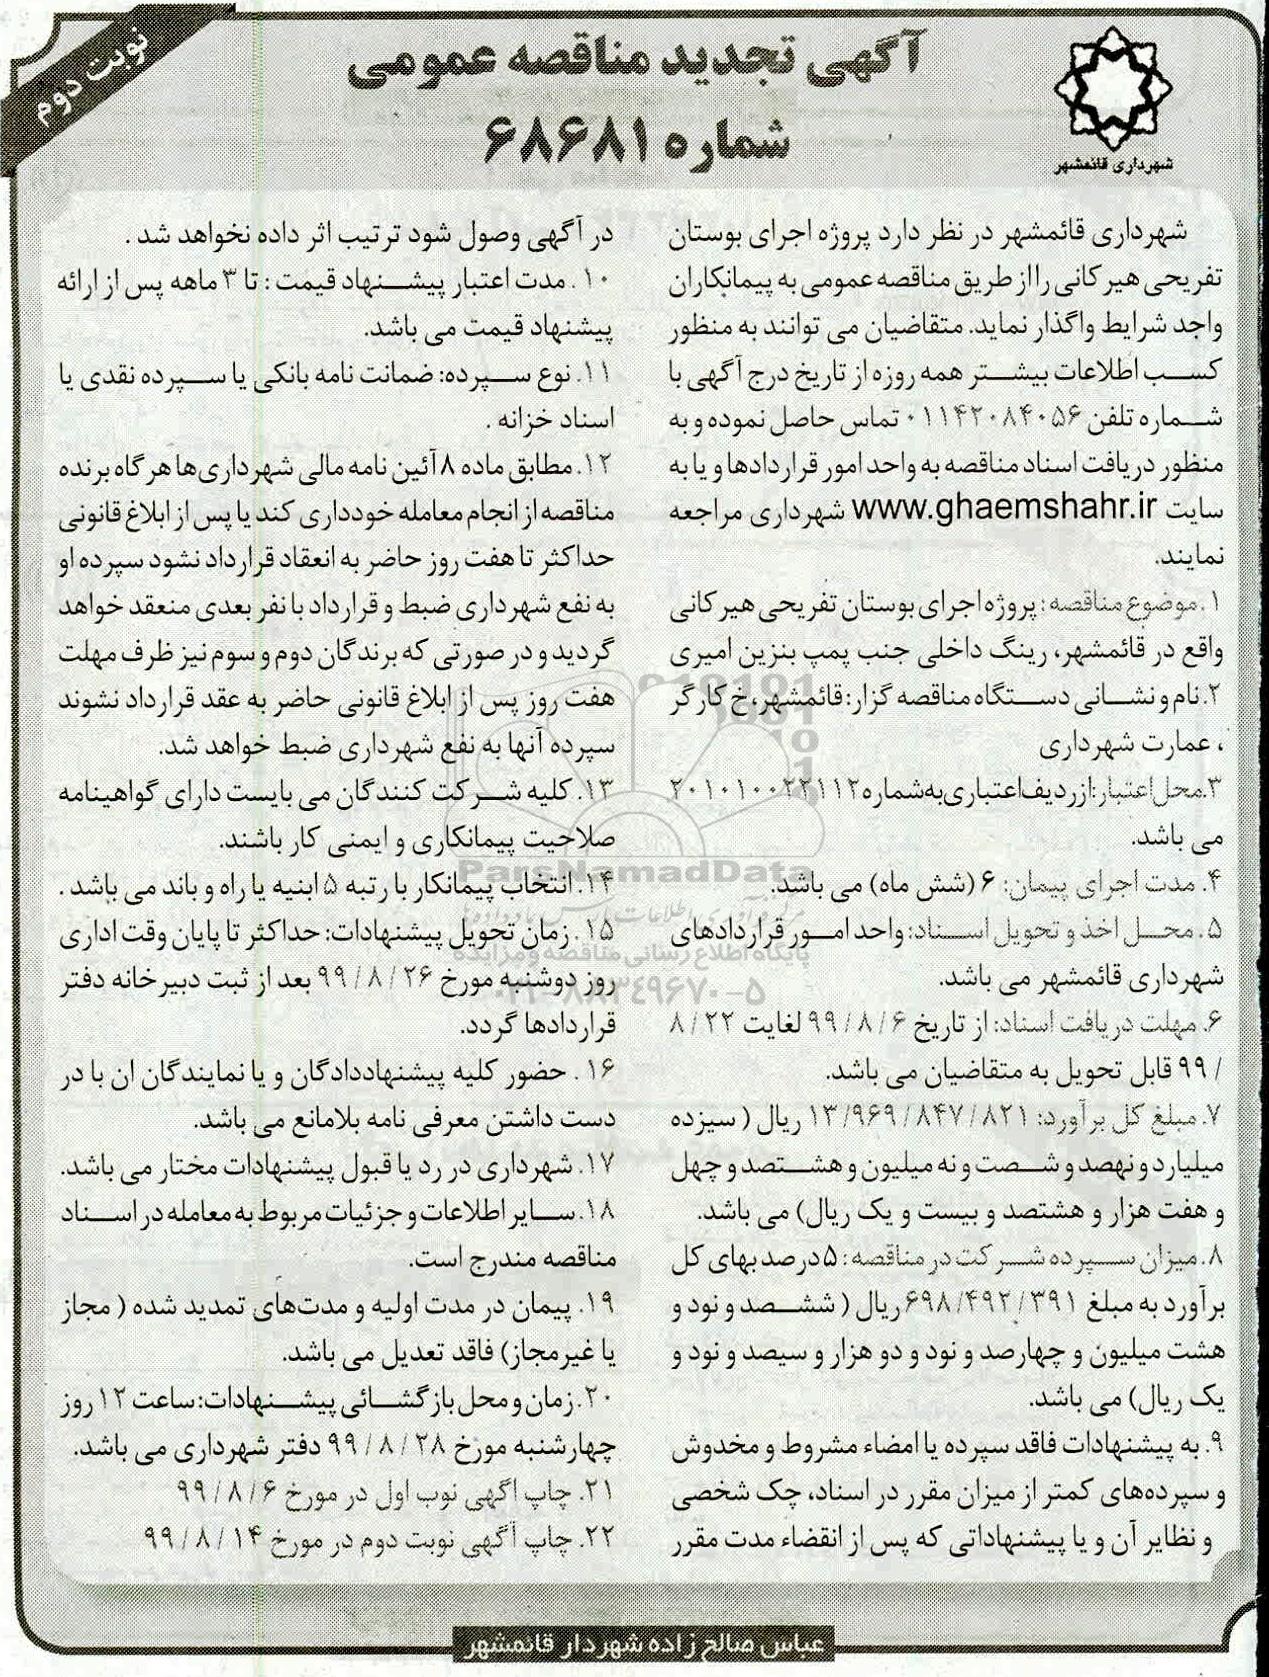 نوبت دوم
آگهی تجدید مناقصه عمومی
شماره ۶۸۶۸۱
شهرداری قائمشهر
شهرداری قائمشهر در نظر دارد پروژه اجرای بوستان
تفریحی هیرکانی را از طریق مناقصه عمومی به پیمانکاران
واجد شرایط واگذار نماید. متقاضیان می توانند به منظور
کسب اطلاعات بیشتر همه روزه از تاریخ درج آگهی با
شماره تلفن ۰۱۱۴۲۰۸۴۰۵۶ تماس حاصل نموده و به
منظور دریافت اسناد مناقصه به واحد امور قراردادها و یا به
سایت www.ghaemshahr.ir شهرداری مراجعه
نمایند.
۱. موضوع مناقصه: پروژه اجرای بوستان تفریحی هیرکانی
واقع در قائمشهر، رینگ داخلی جنب پمپ بنزین امیری
۲. نام و نشانی دستگاه مناقصه گزار: قائمشهر، خ کارگر
، عمارت شهرداری
۳. محل اعتبار: از ردیف اعتباری به شماره ۲۰۱۰۱۰۰۲۲۱۱۲
می باشد.
۴. مدت اجرای پیمان: ۶ (شش ماه) می باشد.
۵. محل اخذ و تحویل اسناد: واحد امور قراردادهای
شهرداری قائمشهر می باشد.
۶. مهلت دریافت اسناد: از تاریخ ۹۹/۸/۶ لغایت ۸/۲۲
/۹۹ قابل تحویل به متقاضیان می باشد.
۷. مبلغ کل برآورد: ۱۳/۹۶۹/۸۴۷/۸۲۱ ریال ( سیزده
میلیارد و نهصد و شصت و نه میلیون و هشتصد و چهل
و هفت هزار و هشتصد و بیست و یک ریال) می باشد.
۸. میزان سپرده شرکت در مناقصه: ۵ درصد بهای کل
برآورد به مبلغ ۶۹۸/۴۹۲/۳۹۱ ریال ( ششصد و نود و
هشت میلیون و چهارصد و نود و دو هزار و سیصد و نود و
یک ریال) می باشد.
۹. به پیشنهادات فاقد سپرده یا امضاء مشروط و مخدوش
و سپرده‌های کمتر از میزان مقرر در اسناد، چک شخصی
و نظایر آن و یا پیشنهاداتی که پس از انقضاء مدت مقرر
در آگهی وصول شود ترتیب اثر داده نخواهد شد .
۱۰ . مدت اعتبار پیشنهاد قیمت : تا ۳ ماهه پس از ارائه
پیشنهاد قیمت می باشد.
۱۱. نوع سپرده: ضمانت نامه بانکی یا سپرده نقدی یا
اسناد خزانه .
۱۲. مطابق ماده ۸ آئین نامه مالی شهرداری‌ها هرگاه برنده
مناقصه از انجام معامله خودداری کند یا پس از ابلاغ قانونی
حداکثر تا هفت روز حاضر به انعقاد قرارداد نشود سپرده او
به نفع شهرداری ضبط و قرارداد با نفر بعدی منعقد خواهد
گردید و در صورتی که برندگان دوم و سوم نیز ظرف مهلت
هفت روز پس از ابلاغ قانونی حاضر به عقد قرارداد نشوند
سپرده آنها به نفع شهرداری ضبط خواهد شد.
۱۳. کلیه شرکت کنندگان می بایست دارای گواهینامه
صلاحیت پیمانکاری و ایمنی کار باشند.
۱۴. انتخاب پیمانکار با رتبه ۵ ابنیه یا راه و باند می باشد .
۱۵. زمان تحویل پیشنهادات: حداکثر تا پایان وقت اداری
روز دوشنبه مورخ ۹۹/۸/۲۶ بعد از ثبت دبیرخانه دفتر
قراردادها گردد.
۱۶ . حضور کلیه پیشنهاددادگان و یا نمایندگان ان با در
دست داشتن معرفی نامه بلامانع می باشد.
۱۷. شهرداری در رد یا قبول پیشنهادات مختار می باشد.
۱۸. سایر اطلاعات و جزئیات مربوط به معامله در اسناد
مناقصه مندرج است.
۱۹. پیمان در مدت اولیه و مدت‌های تمدید شده ( مجاز
یا غیرمجاز) فاقد تعدیل می باشد.
۲۰. زمان و محل بازگشائی پیشنهادات: ساعت ۱۲ روز
چهارشنبه مورخ ۹۹/۸/۲۸ دفتر شهرداری می باشد.
۲۱. چاپ آگهی نوب اول در مورخ ۹۹/۸/۶
۲۲. چاپ آگهی نوبت دوم در مورخ ۹۹/۸/۱۴
عباس صالح زاده شهردار قائمشهر
ParsNamadData
پایگاه اطلاع رسانی مناقصه و مزایده
۰۲۱-۸۸۳۴۹۶۷۰-۵